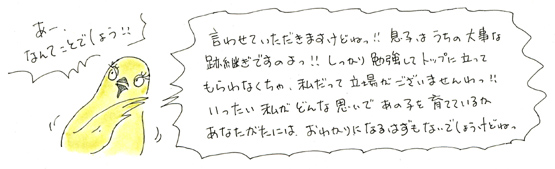 あー、
なんてことでしょう!!
言わせていただきますけどねっ!! 息子はうちの大事な
跡継ぎですのよっ!! しっかり勉強してトップに立って
もらわなくちゃ、私だって立場がございませんわっ!!
いったい私がどんな思いであの子を育てているか
あなたがたには、おわかりになるはずもないでしょうけどねっ